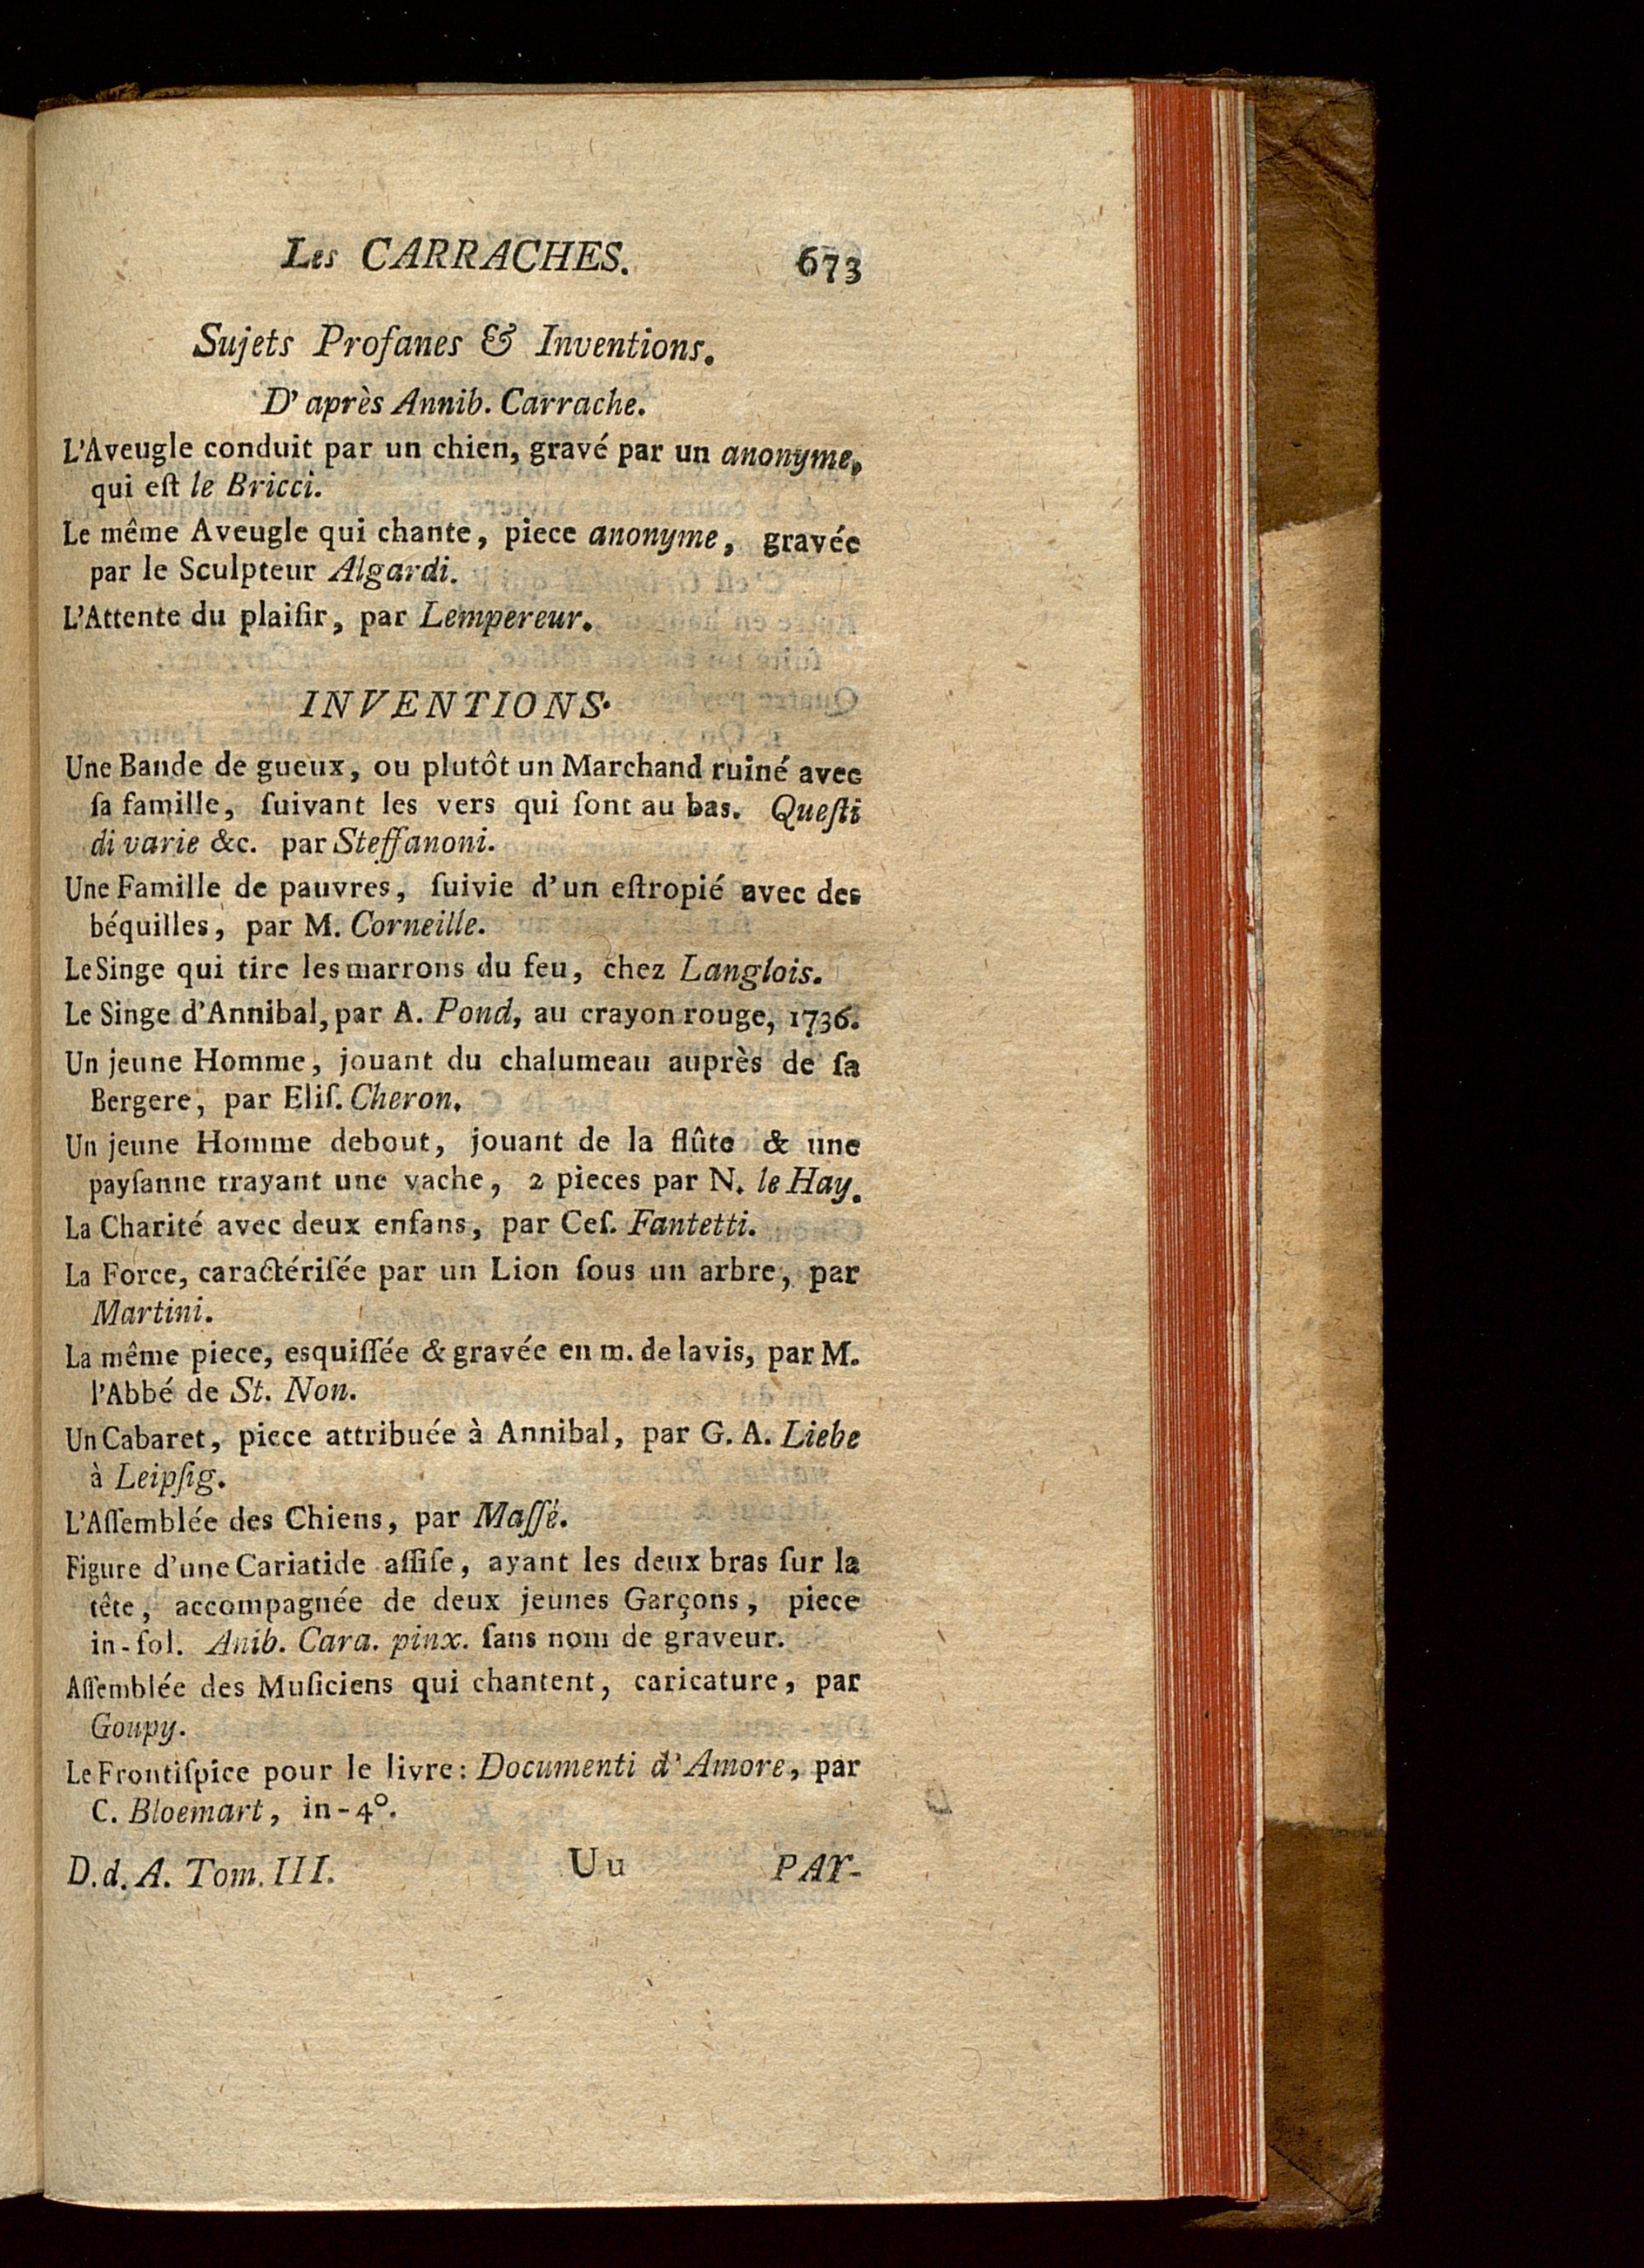 Les CARRACHES. 673
Sujets Profanes & Inventions.
D' après Annib. Carrache.
L'Aveugle conduit par un chien, gravé par un anonyme,
qui eſt le Bricci.
Le même Aveugle qui chante, piece anonyme, gravée
par le Sculpteur Algardi.
L'Attente du plaiſir, par Lempereur.
INVENTIONS.
Une Bande de gueux, ou plutôt un Marchand ruiné avec
ſa famille, ſuivant les vers qui ſont au bas. Queſti
di varie &c. par Steffanoni.
Une Famille de pauvres, ſuivie d'un eſtropié avec des
béquilles, par M. Corneille.
Le Singe qui tire les marrons du feu, chez Langlois.
Le Singe d'Annibal, par A. Pond, au crayon rouge, 1736.
Un jeune Homme, jouant du chalumeau auprès de ſa
Bergere, par Eliſ. Cheron.
Un jeune Homme debout, jouant de la flûte & une
payſanne trayant une vache, 2 pieces par N. le Hay.
La Charité avec deux enfans, par Ceſ. Fantetti.
La Force, caractériſée par un Lion ſous un arbre, par
Martini.
La même piece, esquiſſée & gravée en m. de lavis, par M.
l'Abbé de St. Non.
Un Cabaret, piece attribuée à Annibal, par G. A. Liebe
à Leipſig.
L'Aſſemblée des Chiens, par Maſſé.
Figure d'une Cariatide aſſiſe, ayant les deux bras ſur la
tête, accompagnée de deux jeunes Garçons, piece
in-fol. Anib. Cara. pinx. ſans nom de graveur.
Aſſemblée des Muſiciens qui chantent, caricature, par
Goupy.
Le Frontiſpice pour le livre: Documenti d' Amore, par
C. Bloemart, in-4°.
D. d. A. Tom. III. Uu PAY-